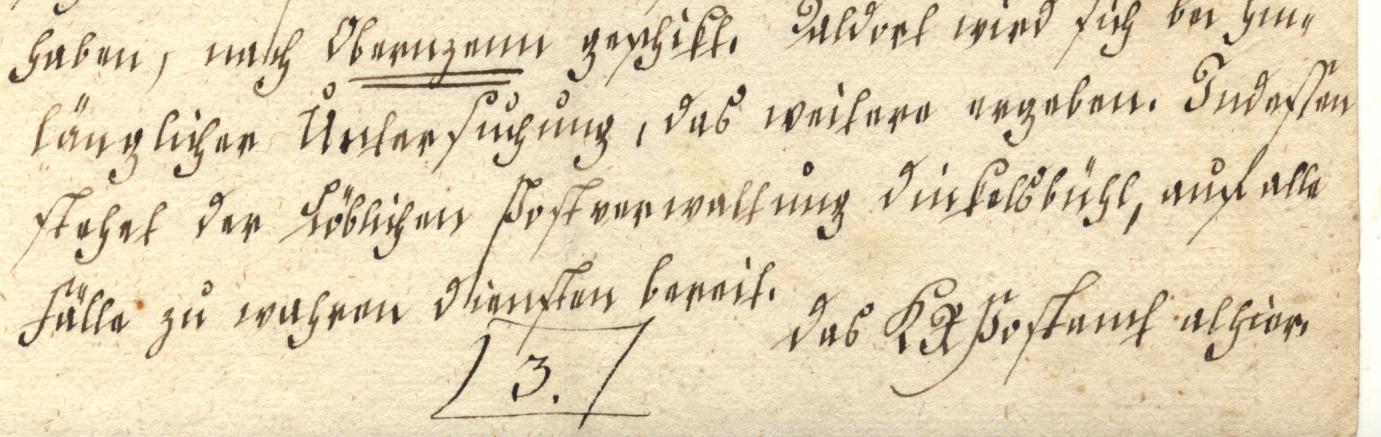 haben, nach Obernzenn geschikt. Daldort wird sich bei hin-
länglicher Untersuchung, das weitere ergeben. Indessen
stehet der Löblichen Postverwaltung Dinkelsbühl, auf alle
Fälle zu wahren diensten bereit.
das KR Postamt alhier.
3.